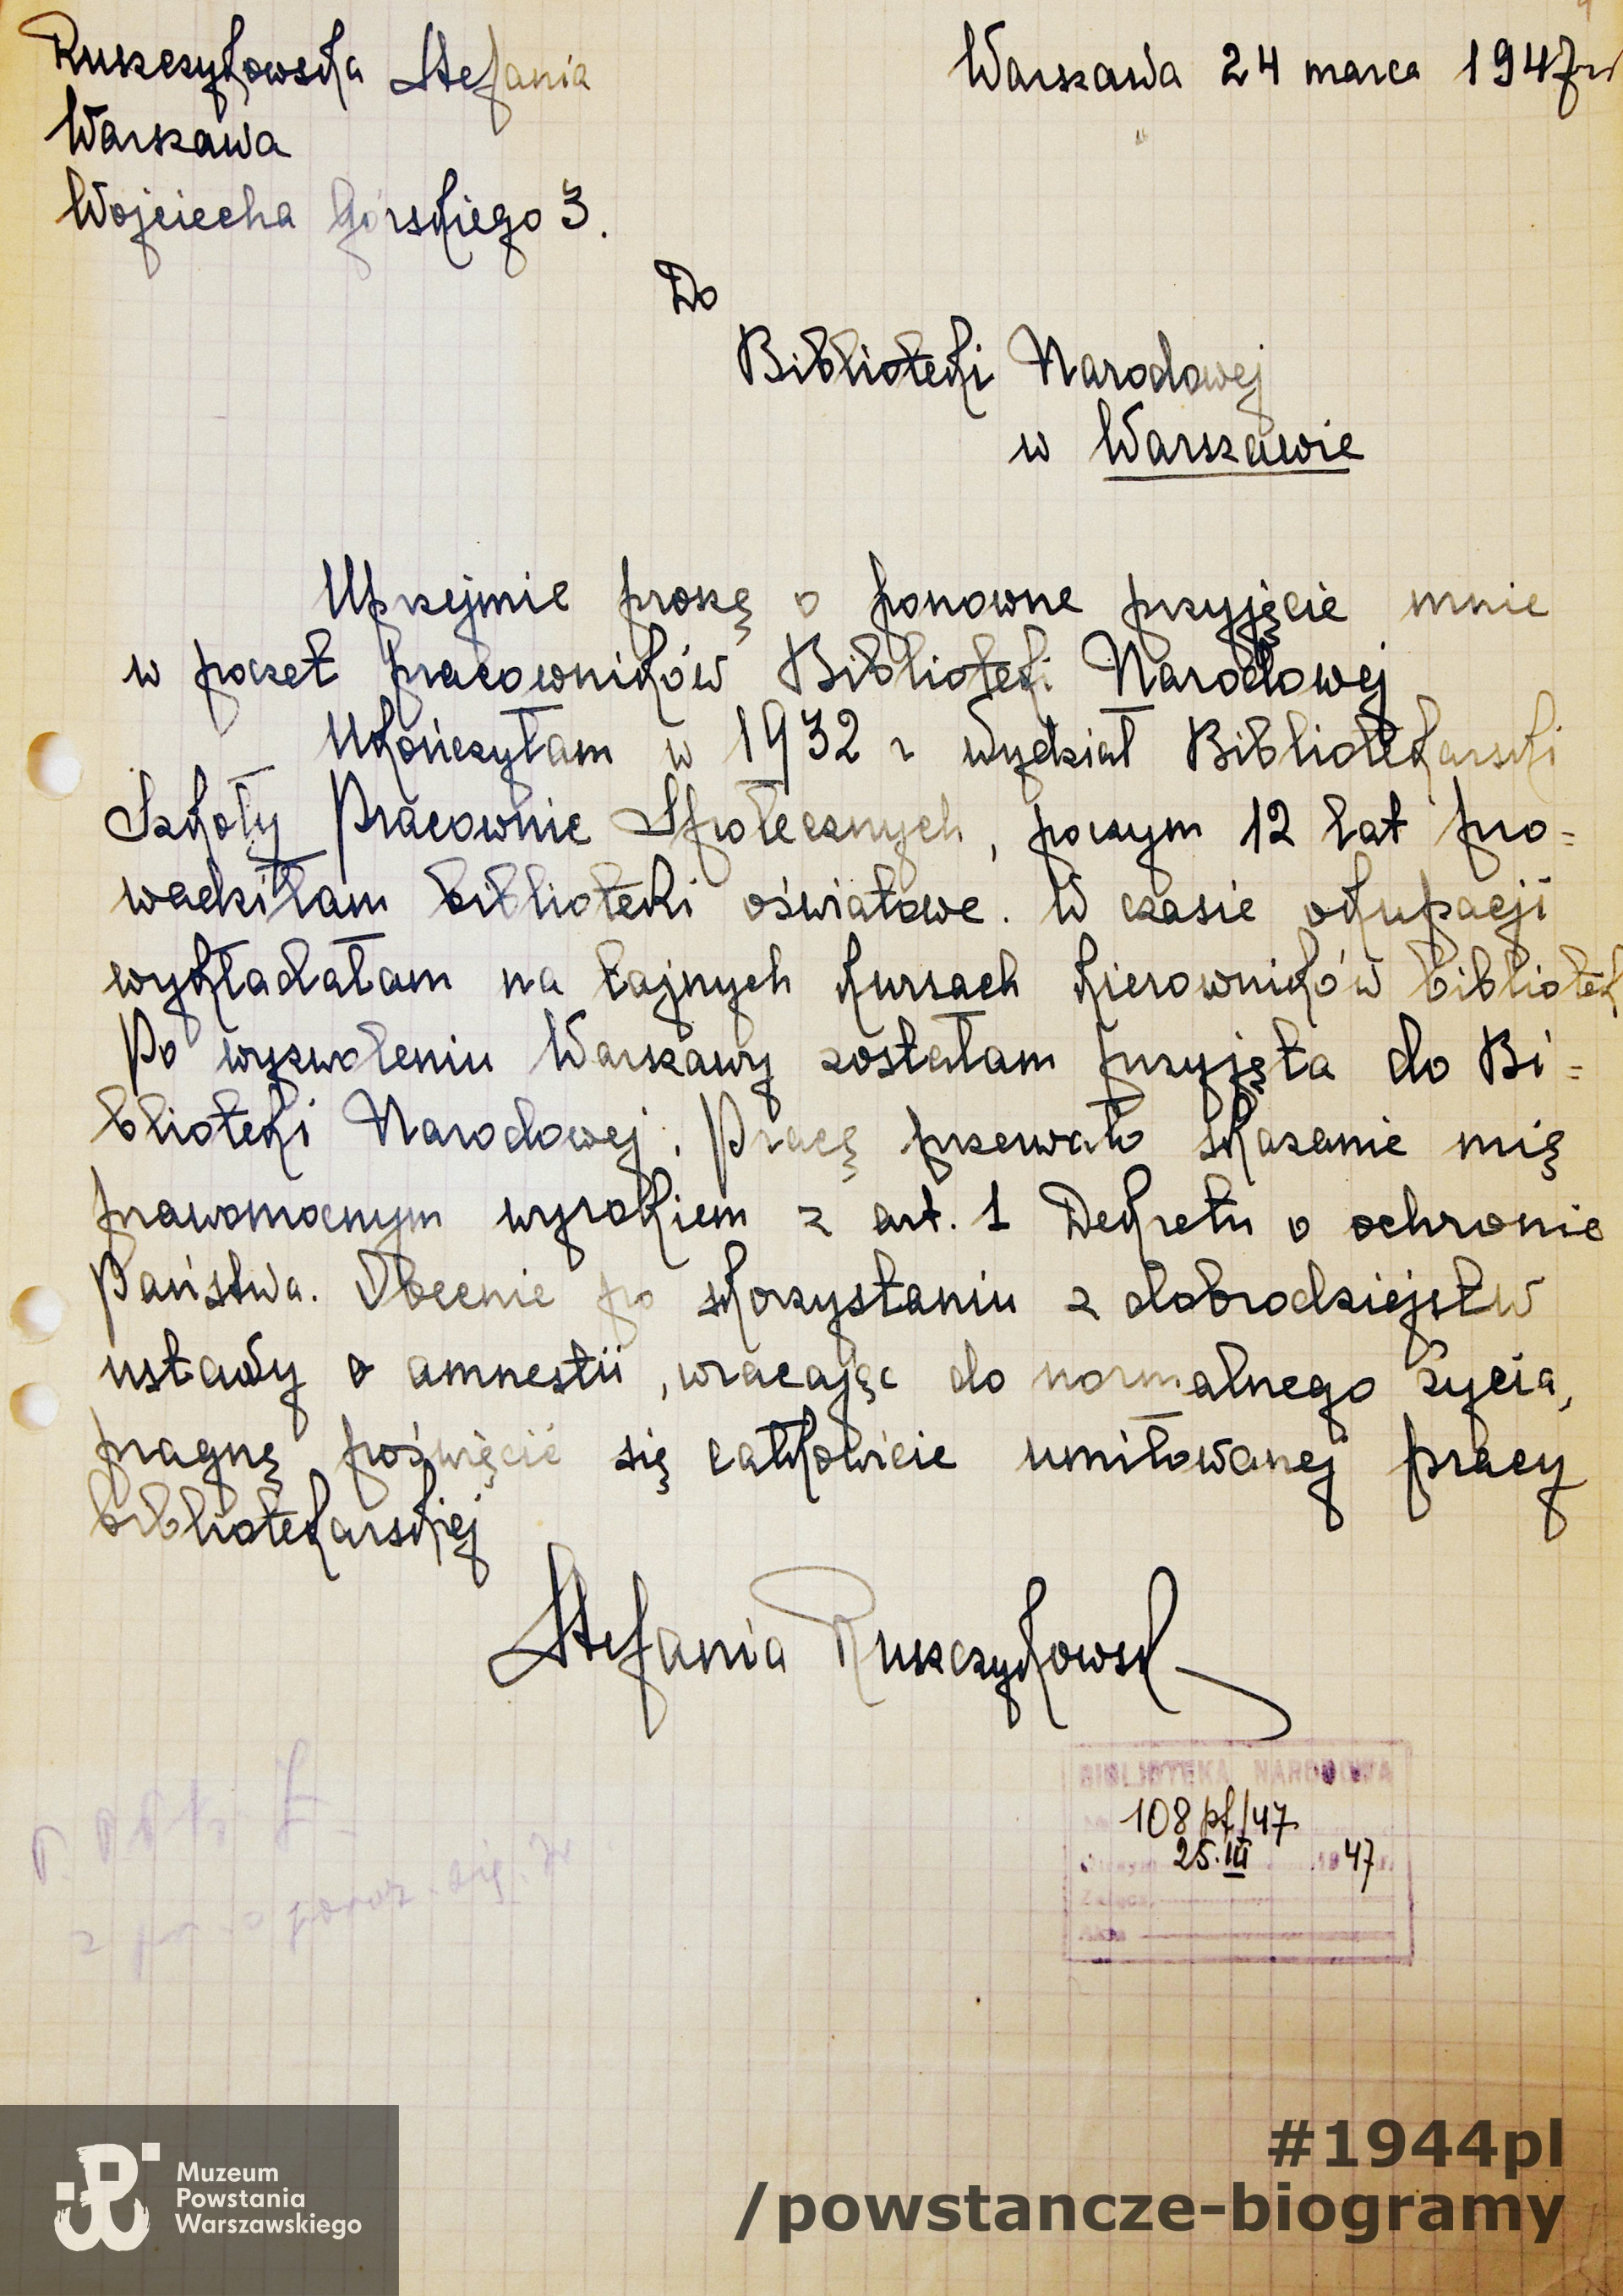 Ruszczykowska Stefania
Warszawa 24 marca 1947 r
Warszawa
Wojciecha Górskiego 3.
Do
Biblioteki Narodowej
w Warszawie
Uprzejmie proszę o ponowne przyjęcie mnie
w poczet pracowników Biblioteki Narodowej
Ukończyłam w 1932 r Wydział Bibliotekarski
Szkoły Pracownic Społecznych, poczym 12 lat pro=
wadziłam biblioteki oświatowe. W czasie okupacji
wykładałam na tajnych kursach kierowników bibliotek
Po wyzwoleniu Warszawy zostałam przyjęta do Bi=
blioteki Narodowej. Pracę przerwało skazanie mię
prawomocnym wyrokiem z art. 1 Dekretu o ochronie
Państwa. Obecnie po skorzystaniu z dobrodziejstw
ustawy o amnestii, wracając do normalnego życia,
pragnę poświęcić się całkowicie umiłowanej pracy
bibliotekarskiej
Stefania Ruszczykowsk
BIBLIOTEKA NARODOWA
108 pf/47
25.III 1947
Muzeum
Powstania
Warszawskiego
#1944pl
/powstancze-biogramy